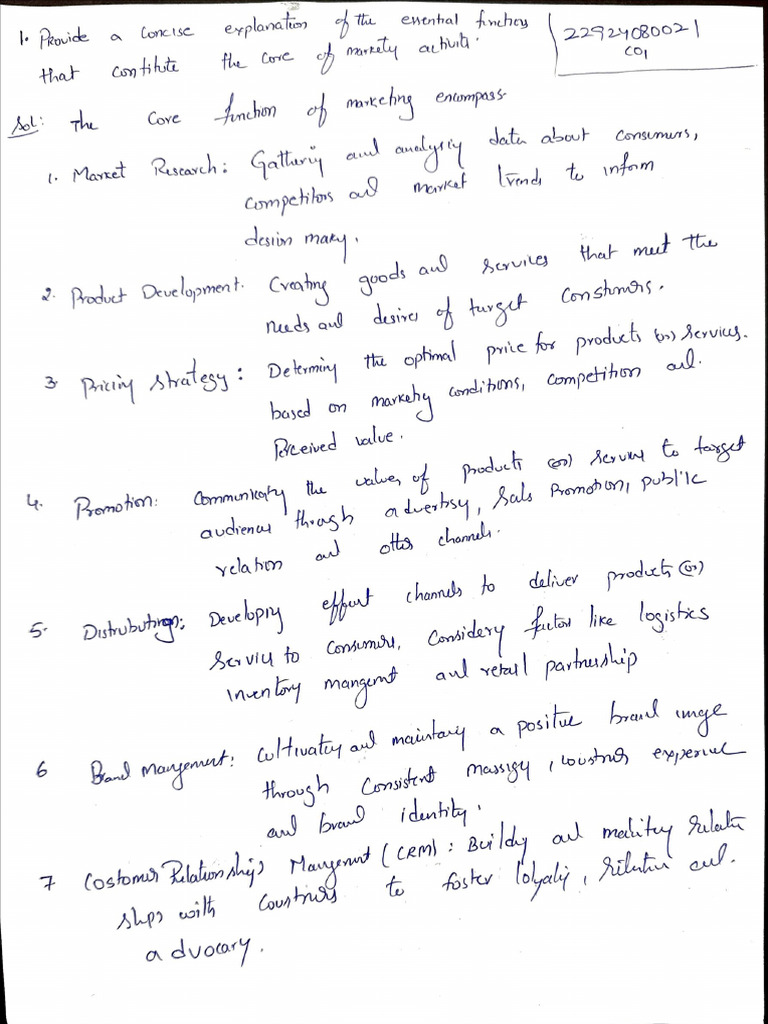 1. Provide a concise explanation of the essential functions
that constitute the core of markety activits.
22924080021
CO1
Sol: The Core function of marketing encompass.
1. Market Research: Gatheriy and analysiy data about consumers,
competitors and market trends to inform
desion maky.
2. Product Development. Creatiy goods and services that meet the
needs and desires of target Constumers.
3. Priciny strategy: Determiny the optimal price for products (or) services.
based on markety conditions, competition and.
Perceived value.
4. Promotion: Communicaty the values of products (or) servies to target
audiences through advertisy, Sals Promotion, public
relation and other channels.
5. Distrubutings: Developiny effort channels to deliver products (or)
Servies to consumers, Considery factors like logistics
inventory mangemnt and retail partnership
6 Brand Mangement: Cultivatiy and maintaiy a positive brand image
through Consistent massigy, coustmer experience
and brand identity.
7 Costomer Relationships Mangemnt (CRM): Buildiy and maitiny relation
ships with Coustmers to foster loyality, retention and.
advocary.